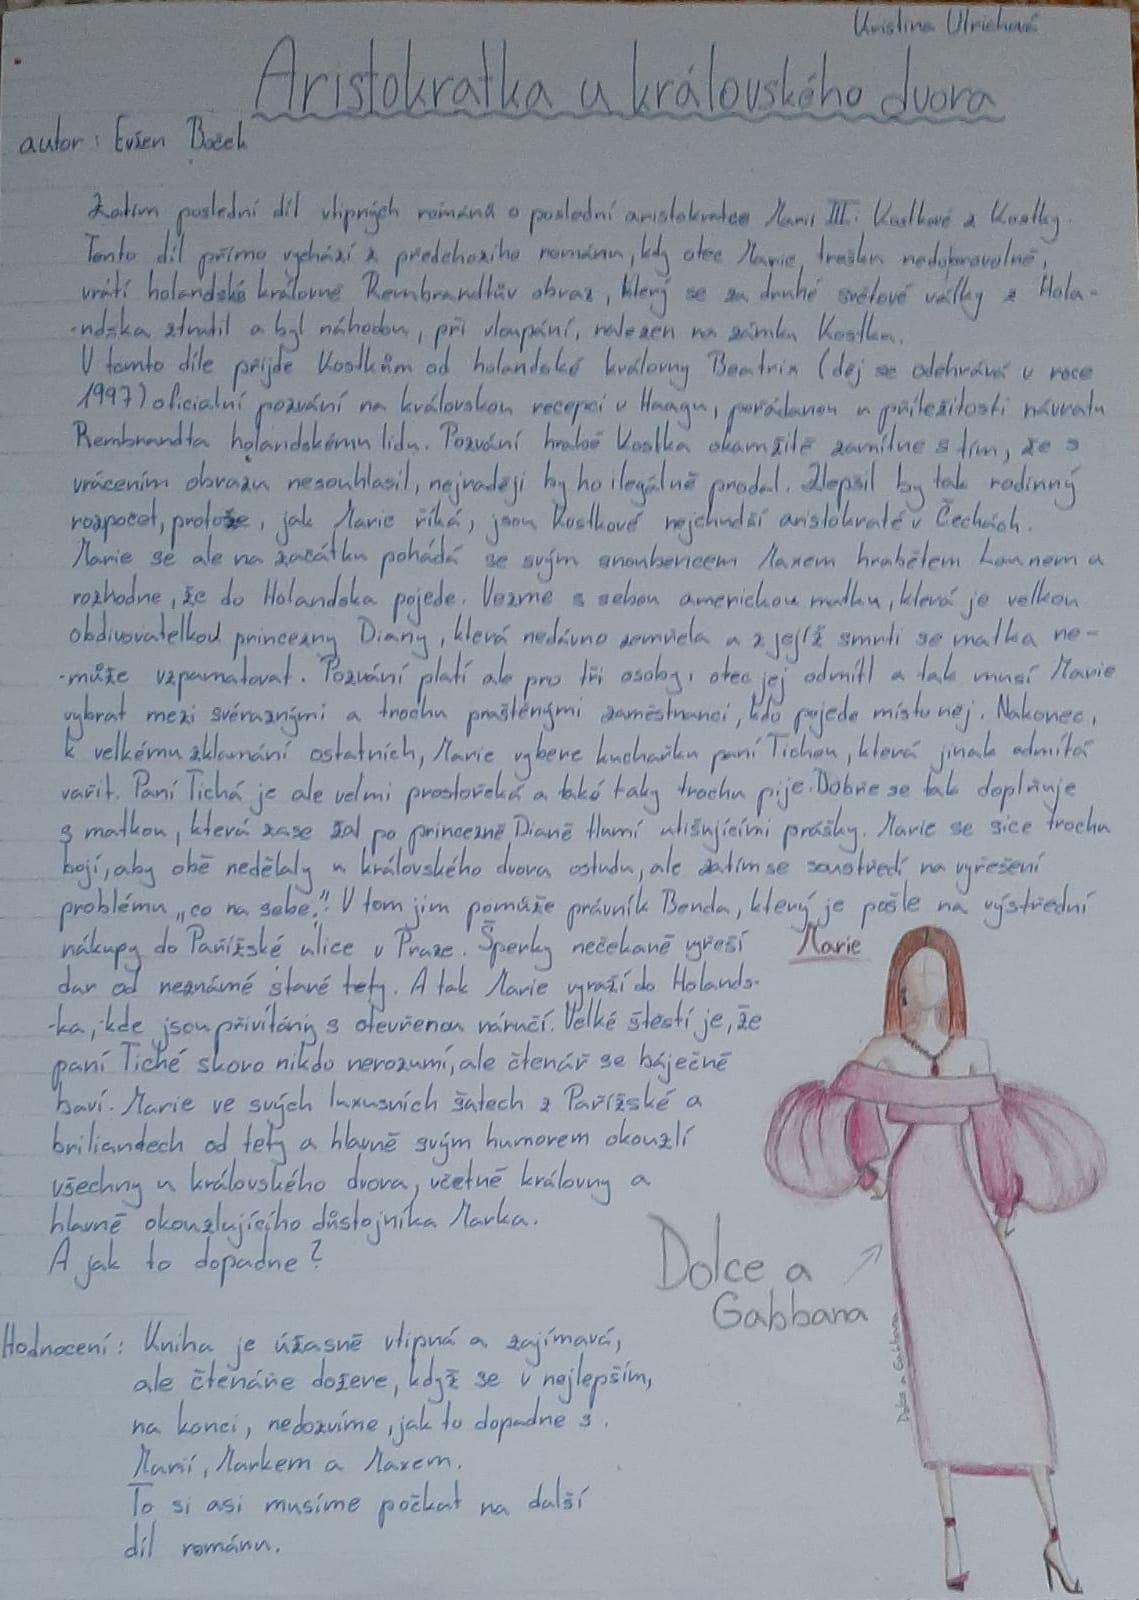 Kristina Ulrichová
Aristokratka u královského dvora
autor: Evžen Boček
Zatím poslední díl vtipných románů o poslední aristokratce Marii III. Kostkové z Kostky.
Tento díl přímo vychází z předchozího románu, kdy otec Marie, trošku nedobrovolně,
vrátí holandské královně Rembrandtův obraz, který se za druhé světové války z Hola-
-ndska ztratil a byl náhodou, při vloupání, nalezen na zámku Kostka.
V tomto díle přijde Kostkům od holandské královny Beatrix (děj se odehrává v roce
1997) oficialní pozvání na královskou recepci v Haagu, pořádanou u příležitosti návratu
Rembrandta holandskému lidu. Pozvání hrabě Kostka okamžitě zamítne s tím, že s
vrácením obrazu nesouhlasil, nejraději by ho ilegálně prodal. Zlepšil by tak rodinný
rozpočet, protože, jak Marie říká, jsou Kostkové nejchudší aristokraté v Čechách.
Marie se ale na začátku pohádá se svým snoubencem Maxem hrabětem Launem a
rozhodne, že do Holandska pojede. Vezme s sebou americkou matku, která je velkou
obdivovatelkou princezny Diany, která nedávno zemřela a z jejíž smrti se matka ne-
-může vzpamatovat. Pozvání platí ale pro tři osoby, otec jej odmítl a tak musí Marie
vybrat mezi svéraznými a trochu praštěnými zaměstnanci, kdo pojede místo něj. Nakonec,
k velkému zklamání ostatních, Marie vybere kuchařku paní Tichou, která jinak odmítá
vařit. Paní Tichá je ale velmi prostořeká a také taky trochu pije. Dobře se tak doplňuje
s matkou, která zase žal po princezně Dianě tlumí utišujícími prášky. Marie se sice trochu
bojí, aby obě nedělaly u královského dvora ostudu, ale zatím se soustředí na vyřešení
problému „co na sebe." V tom jim pomůže právník Benda, který je pošle na výstřední
nákupy do Pařížské ulice v Praze. Šperky nečekaně vyřeší
dar od neznámé staré tety. A tak Marie vyrazí do Holands-
-ka, kde jsou přivítány s otevřenou náručí. Velké štěstí je, že
paní Tiché skoro nikdo nerozumí, ale čtenář se báječně
baví. Marie ve svých luxusních šatech z Pařížské a
briliandech od tety a hlavně svým humorem okouzlí
všechny u královského dvora, včetně královny a
hlavně okouzlujícího důstojníka Marka.
A jak to dopadne?
Marie
Dolce a
Gabbana
Dolce a Gabbana
Hodnocení: Kniha je úžasně vtipná a zajímavá,
ale čtenáře dožere, když se v nejlepším,
na konci, nedozvíme, jak to dopadne s
Marií, Markem a Maxem.
To si asi musíme počkat na další
díl románu.